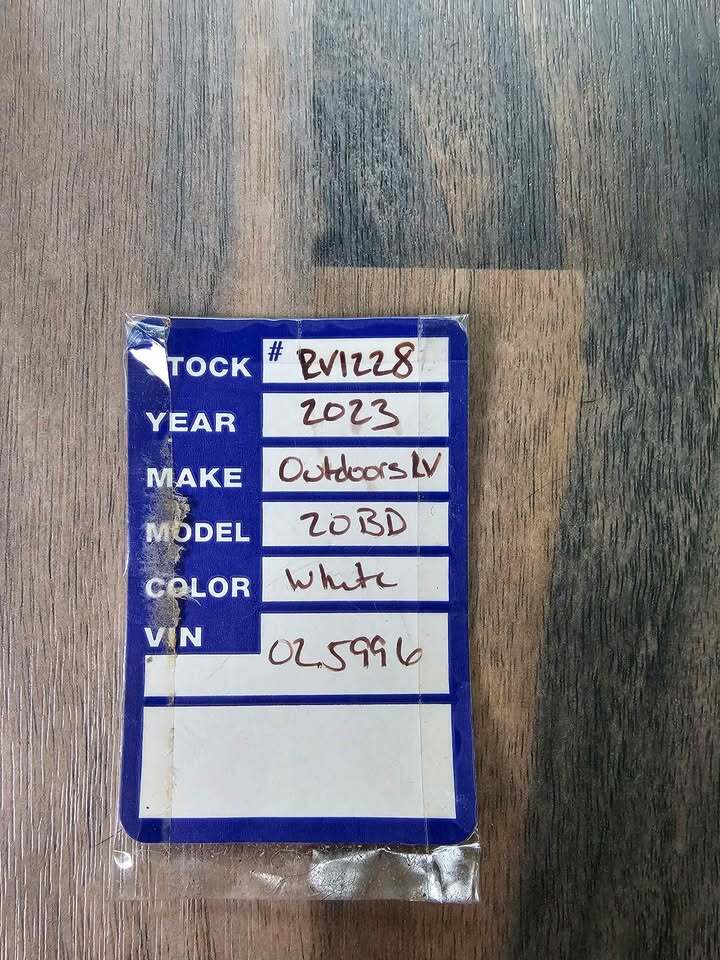 STOCK # RV1228
YEAR 2023
MAKE OutdoorsRV
MODEL 20BD
COLOR White
VIN 025996